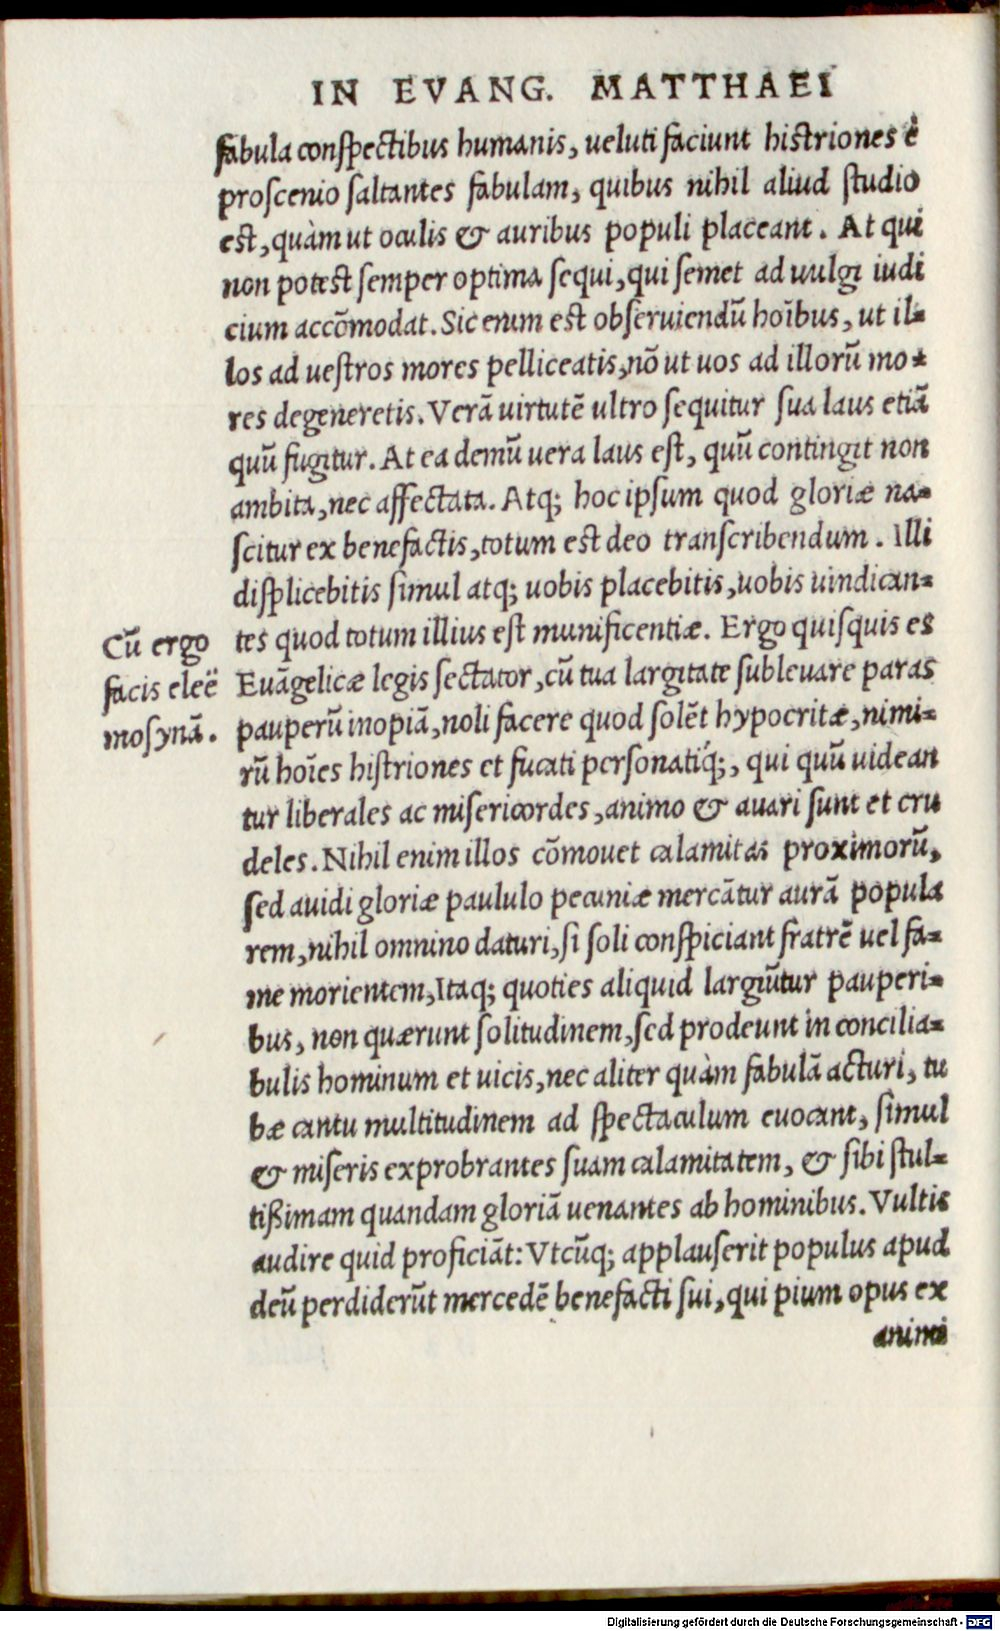 IN EVANG. MATTHAEI
fabula conſpectibus humanis, ueluti faciunt hiſtriones è
proſcenio ſaltantes fabulam, quibus nihil aliud ſtudio
eſt, quàm ut oculis & auribus populi placeant. At qui
non poteſt ſemper optima ſequi, qui ſemet ad uulgi iudi
cium accōmodat. Sic enim eſt obſeruiendū hoībus, ut il=
los ad ueſtros mores pelliceatis, nō ut uos ad illorū mo=
res degeneretis. Verā uirtutē ultro ſequitur ſua laus etiā
quū fugitur. At ea demū uera laus eſt, quū contingit non
ambita, nec affectata. Atq; hoc ipſum quod gloriæ na=
ſcitur ex benefactis, totum eſt deo tranſcribendum. Illi
diſplicebitis ſimul atq; uobis placebitis, uobis uindican=
Cū ergo
facis eleē
moſynā.
tes quod totum illius eſt munificentiæ. Ergo quiſquis es
Euāgelicæ legis ſectator, cū tua largitate ſubleuare paras
pauperū inopiā, noli facere quod ſolēt hypocritæ, nimi=
rū hoīes hiſtriones et fucati perſonatíq;, qui quū uidean
tur liberales ac miſericordes, animo & auari ſunt et cru
deles. Nihil enim illos cōmouet calamitas proximorū,
ſed auidi gloriæ paululo pecuniæ mercātur aurā popula
rem, nihil omnino daturi, ſi ſoli conſpiciant fratrē uel fa=
me morientem, Itaq; quoties aliquid largiūtur pauperi=
bus, non quærunt ſolitudinem, ſed prodeunt in concilia=
bulis hominum et uicis, nec aliter quàm fabulā acturi, tu
bæ cantu multitudinem ad ſpectaculum euocant, ſimul
& miſeris exprobrantes ſuam calamitatem, & ſibi ſtul=
tißimam quandam gloriā uenantes ab hominibus. Vultis
audire quid proficiāt: Vtcūq; applauſerit populus apud
deū perdiderūt mercedē benefacti ſui, qui pium opus ex
animi
Digitalisierung gefördert durch die Deutsche Forschungsgemeinschaft - DFG